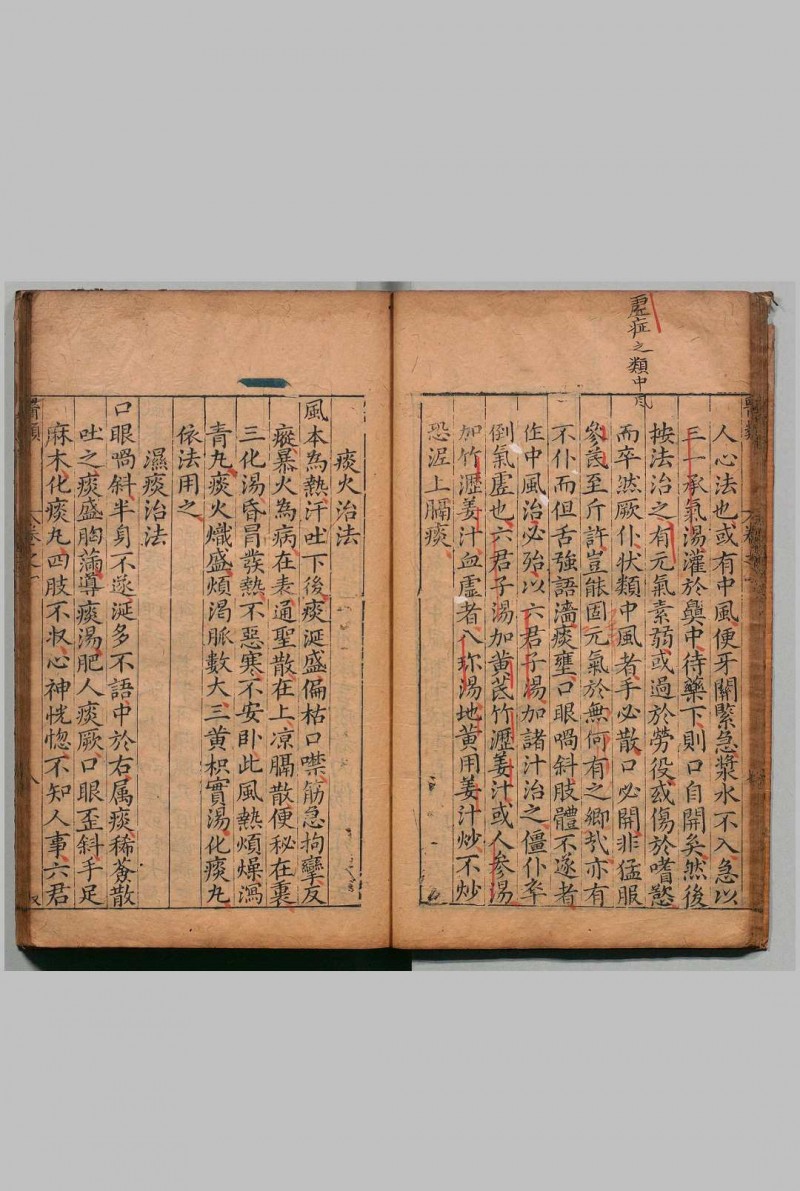 虛症之類中風
人心法也或有中風便牙關緊急漿水不入急以
三一承氣湯灌於鼻中待藥下則口自開矣然後
按法治之有元氣素弱或過於勞役或傷於嗜慾
而卒然厥仆状類中風者手必散口必開非猛服
參芪至斤許豈能固元氣於無何有之鄉哉亦有
不仆而但舌強語濇痰壅口眼喎斜肢體不遂者
作中風治必殆以六君子湯加諸汁治之僵仆卒
倒氣虛也六君子湯加黄芪竹瀝姜汁或人參湯
加竹瀝姜汁血虛者八珎湯地黄用姜汁炒不炒
恐泥上膈痰
痰火治法
風本為熱汗吐下後痰涎盛偏枯口噤筋急拘攣友
瘲暴火為病在表通聖散在上凉膈散便秘在裏
三化湯昏冒發熱不惡寒不安卧此風熱煩燥瀉
青丸痰火熾盛煩渴脈數大三黄枳實湯化痰丸
依法用之
濕痰治法
口眼喎斜半身不遂涎多不語中於右属痰稀薟散
吐之痰盛胸滿導痰湯肥人痰厥口眼歪斜手足
麻木化痰丸四肢不収心神恍惚不知人事六君